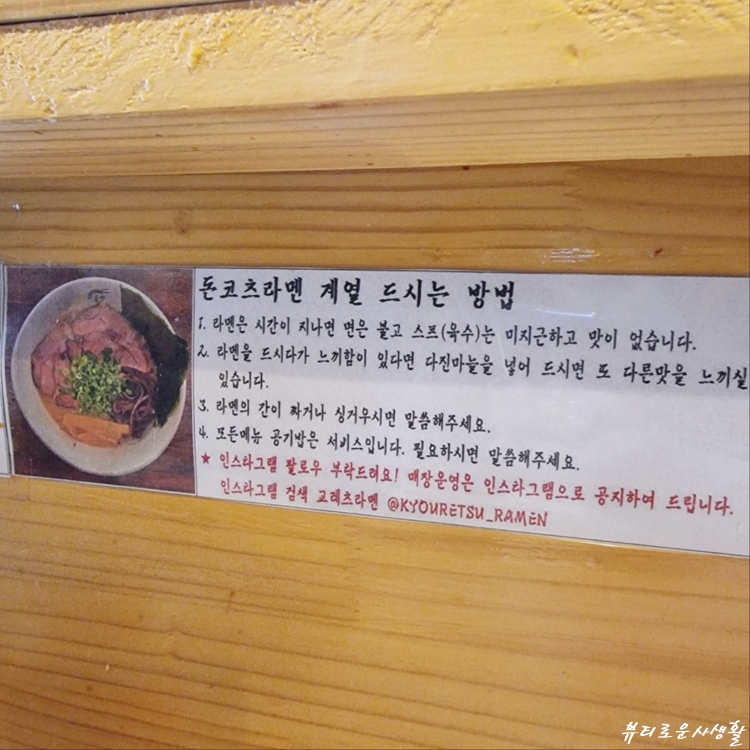 돈코츠라멘 계열 드시는 방법
1. 라멘은 시간이 지나면 면은 불고 스프(육수)는 미지근하고 맛이 없습니다.
2. 라멘을 드시다가 느끼함이 있다면 다진마늘을 넣어 드시면 또 다른맛을 느끼실
있습니다.
3. 라멘의 간이 짜거나 싱거우시면 말씀해주세요.
4. 모든메뉴 공기밥은 서비스입니다. 필요하시면 말씀해주세요.
★ 인스타그램 팔로우 부탁드려요! 매장운영은 인스타그램으로 공지하여 드립니다.
인스타그램 검색 교레츠라멘 @KYOURETSU_RAMEN
뷰티로운사생활